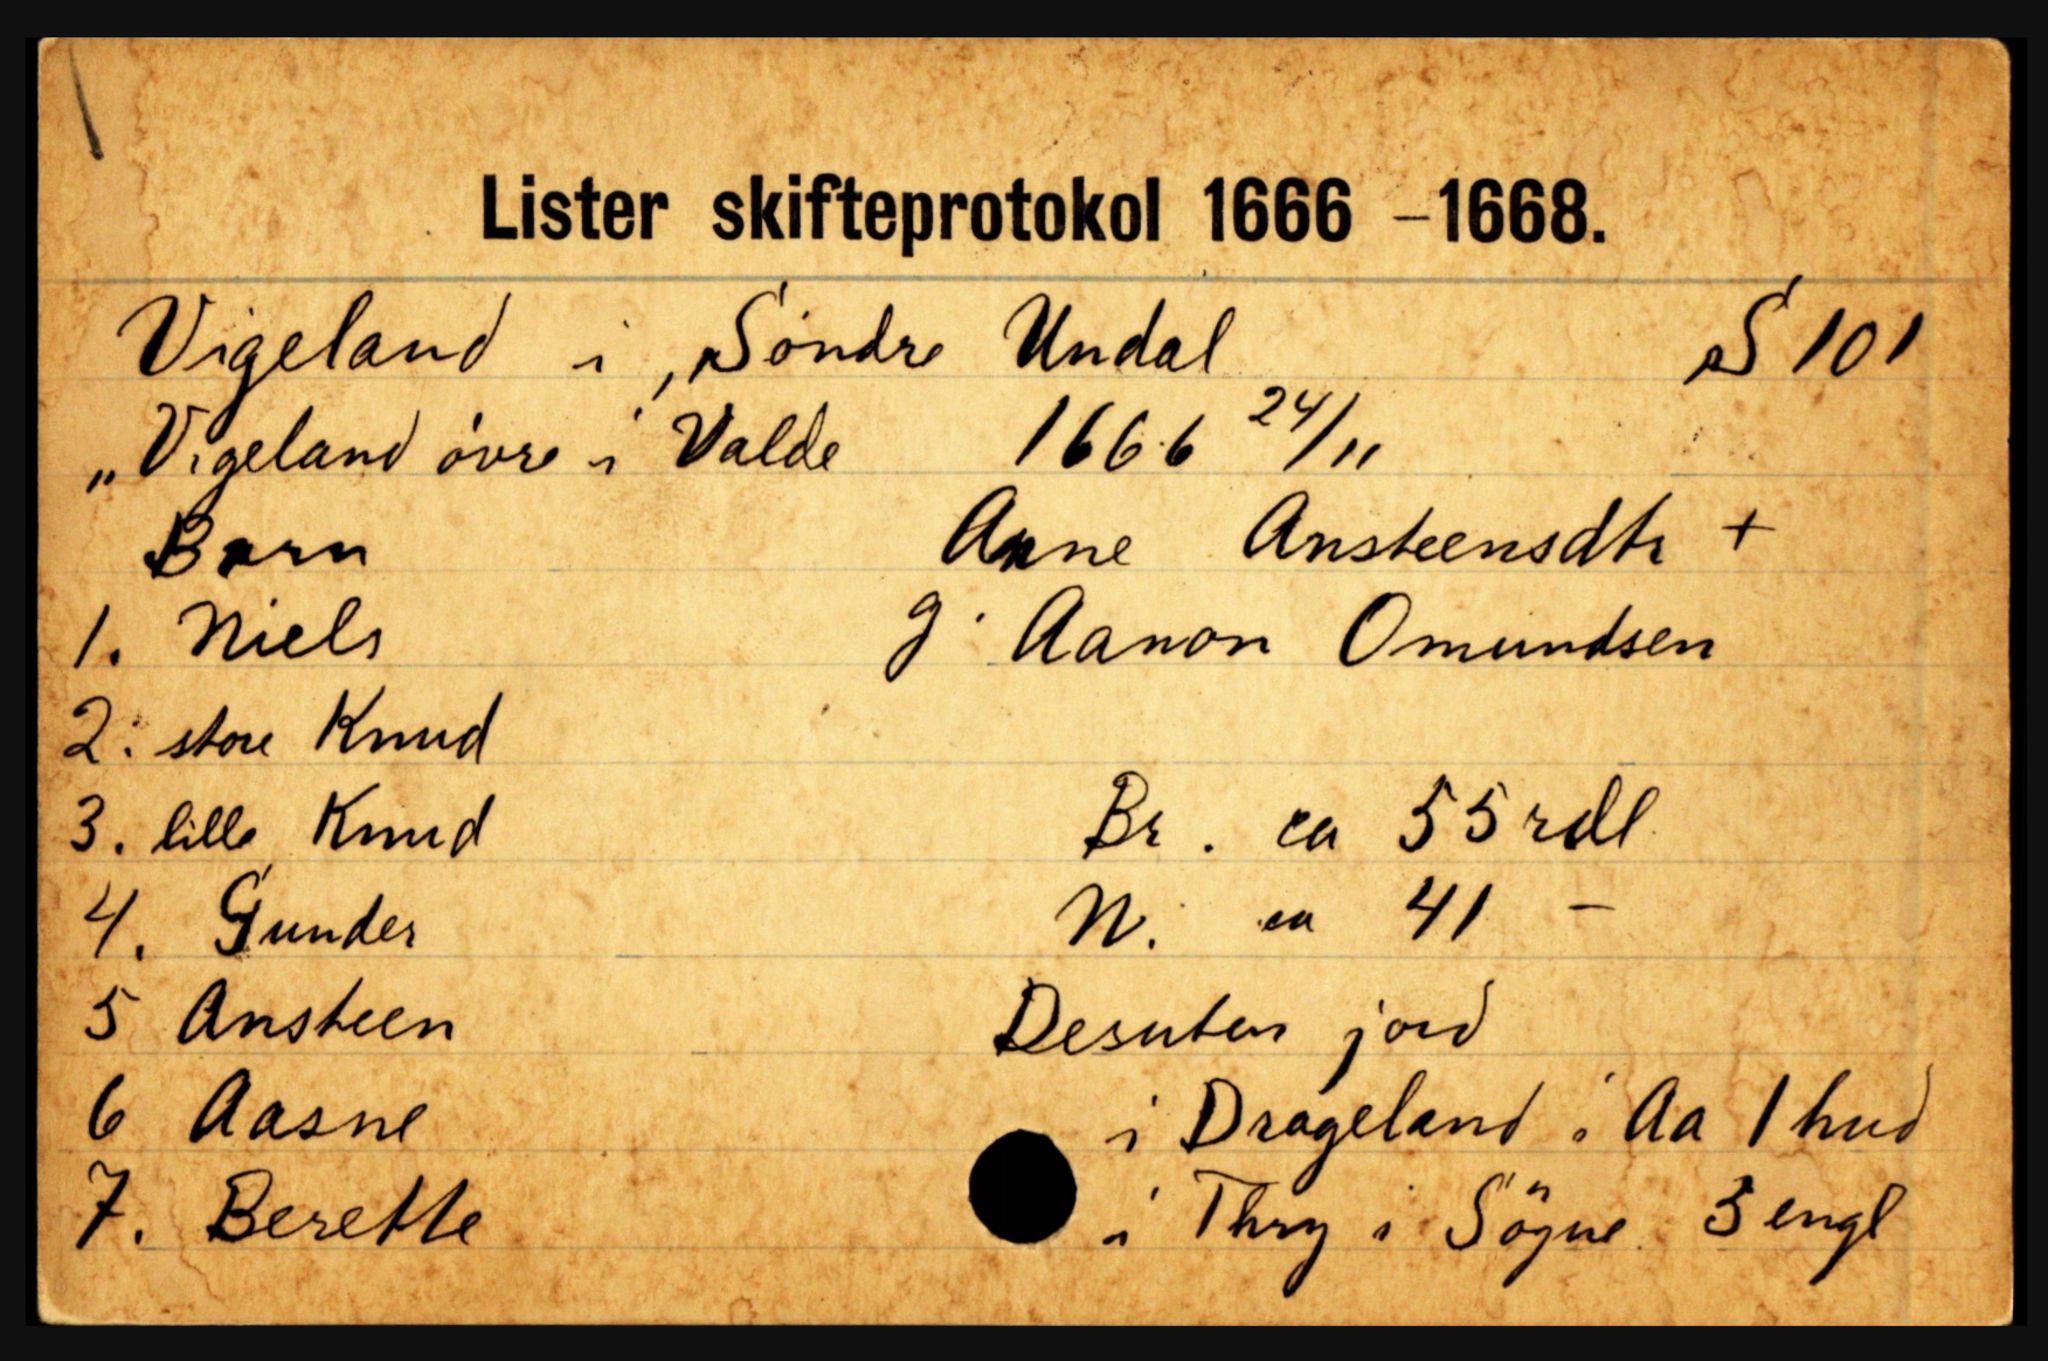 Lister skifteprotokol 1666 –1668.
Vigeland i Söndre Undal S 101
„Vigeland övre i Valde 1666 24/11
Barn Anne Ansteensdtr +
1. Niels g. Aanon Omundsen
2. store Knud
3. lille Knud Br. ca 55 rdl
4. Gunder N. ca 41 –
5 Ansteen Desuten jord
6 Aasne i Drageland i Aa 1 hud
7. Berette i Thry i Sögne 3 engl